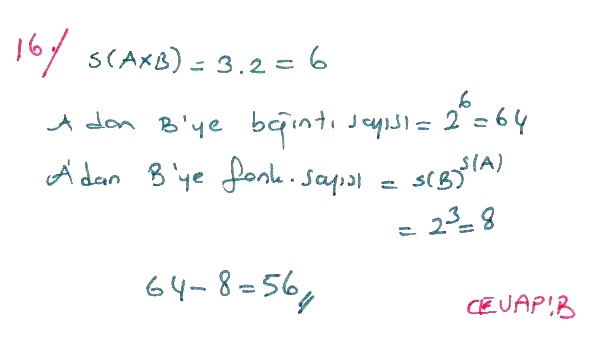 16./ S(AxB) = 3.2 = 6
A dan B'ye bağıntı sayısı = 2⁶ = 64
A'dan B'ye fonk. sayısı = s(B)^s(A)
= 2³ = 8
64 - 8 = 56
CEVAP:B